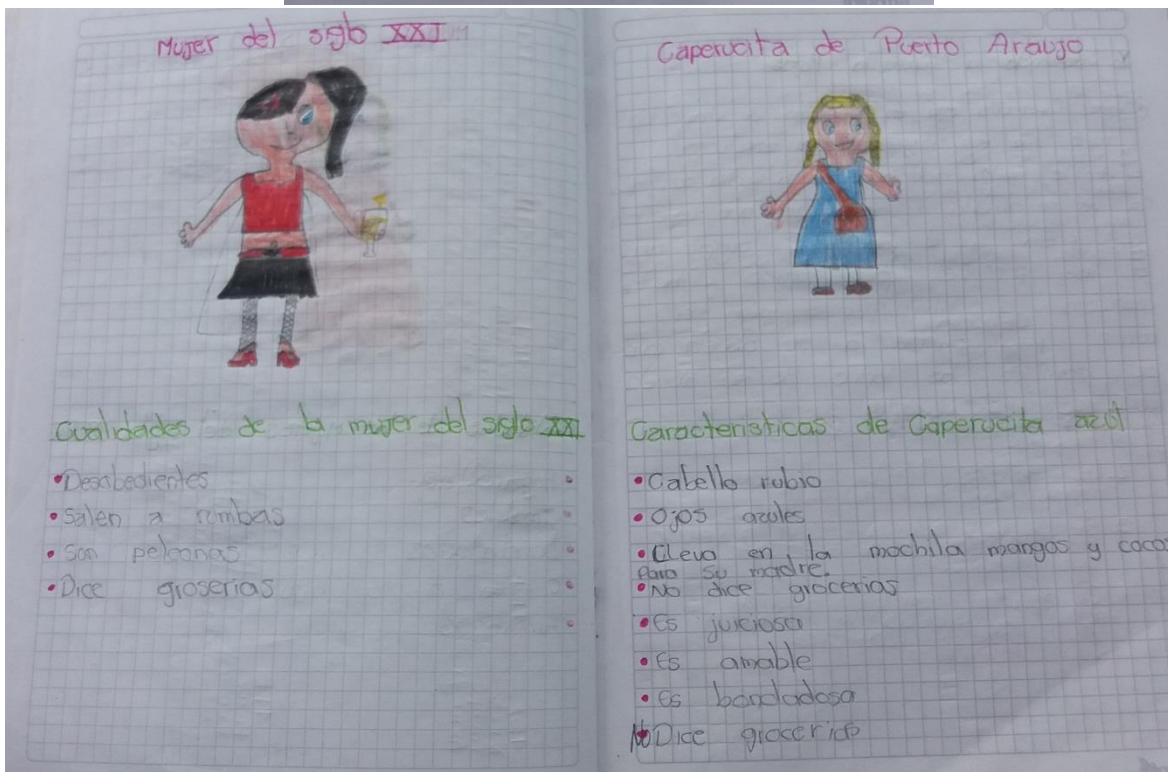 Mujer del siglo XXI
Cualidades de la mujer del siglo XXI
•Desobedientes
•Salen a rumbas
•Son peleonas
•Dice groserias
Caperucita de Puerto Araujo
Caracteristicas de Caperucita azul
•Cabello rubio
•Ojos azules
•Lleva en la mochila mangos y coco
para su madre.
•No dice grocerias
•Es juiciosa
•Es amable
•Es bondadosa
No Dice grocerias